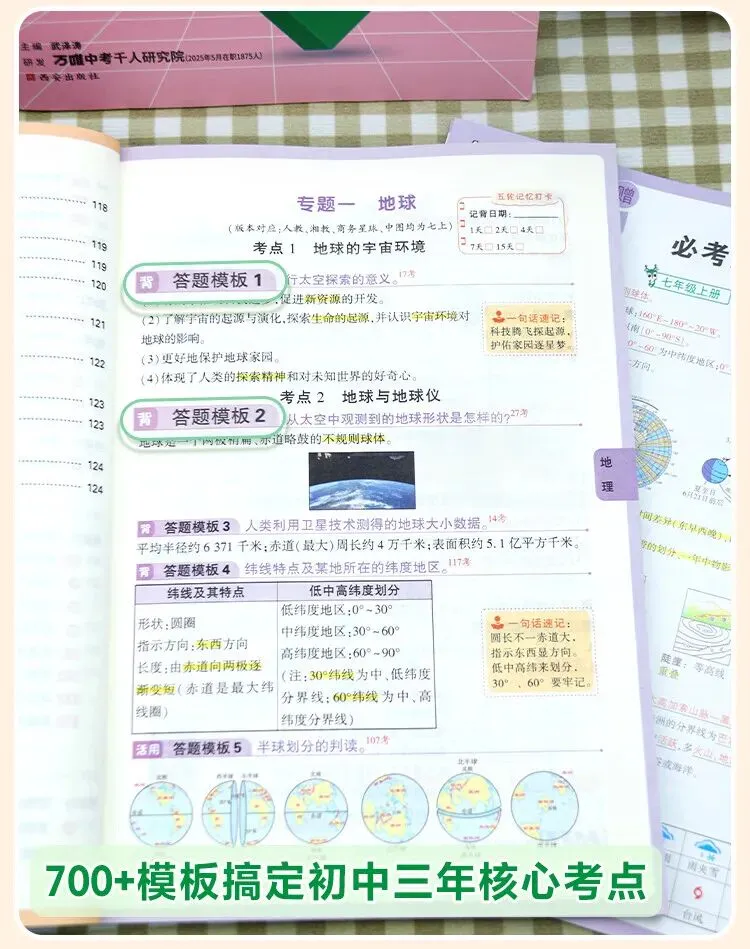 主编 武泽涛
研发 万唯中考千人研究院(2025年5月在职1875人)
西安出版社
118
119
119
120
121
122
123
123
124
124
专题一 地球
(版本对应:人教、湘教、商务星球、中图均为七上)
五轮记忆打卡
记背日期:
1天□ 2天□ 4天□
7天□ 15天□
考点1 地球的宇宙环境
背 答题模板1 行太空探索的意义。17考
促进新资源的开发。
(2)了解宇宙的起源与演化,探索生命的起源,并认识宇宙环境对
地球的影响。
(3)更好地保护地球家园。
(4)体现了人类的探索精神和对未知世界的好奇心。
一句话速记:
科技腾飞探起源,
护佑家园逐星梦。
考点2 地球与地球仪
背 答题模板2 从太空中观测到的地球形状是怎样的?27考
地球是一个两极稍扁、赤道略鼓的不规则球体。
背 答题模板3 人类利用卫星技术测得的地球大小数据。14考
平均半径约6 371千米;赤道(最大)周长约4万千米;表面积约5.1亿平方千米。
背 答题模板4 纬线特点及某地所在的纬度地区。117考
纬线及其特点
形状:圆圈
指示方向:东西方向
长度:由赤道向两极逐
渐变短(赤道是最大纬
线圈)
低中高纬度划分
低纬度地区:0°~30°
中纬度地区:30°~60°
高纬度地区:60°~90°
(注:30°纬线为中、低纬度
分界线;60°纬线为中、高
纬度分界线)
一句话速记:
圆长不一赤道大,
指示东西显方向。
低中高纬来划分,
30°、60°要牢记。
活用 答题模板5 半球划分的判读。107考
北半球
地理
赠
必考
七年级上册
球体。
160°E-180°-20°W,
[0°-90°S]。
0°-60°为中纬度地区;
方向。
夏至日
6月21日前后
时间差异(东早西晚)、
的划分、一年中物影
陡崖:等高线
重叠
洲的分界线为巴
活跃,多火山、地
海洋。
雨夹雪
台风
700+模板搞定初中三年核心考点